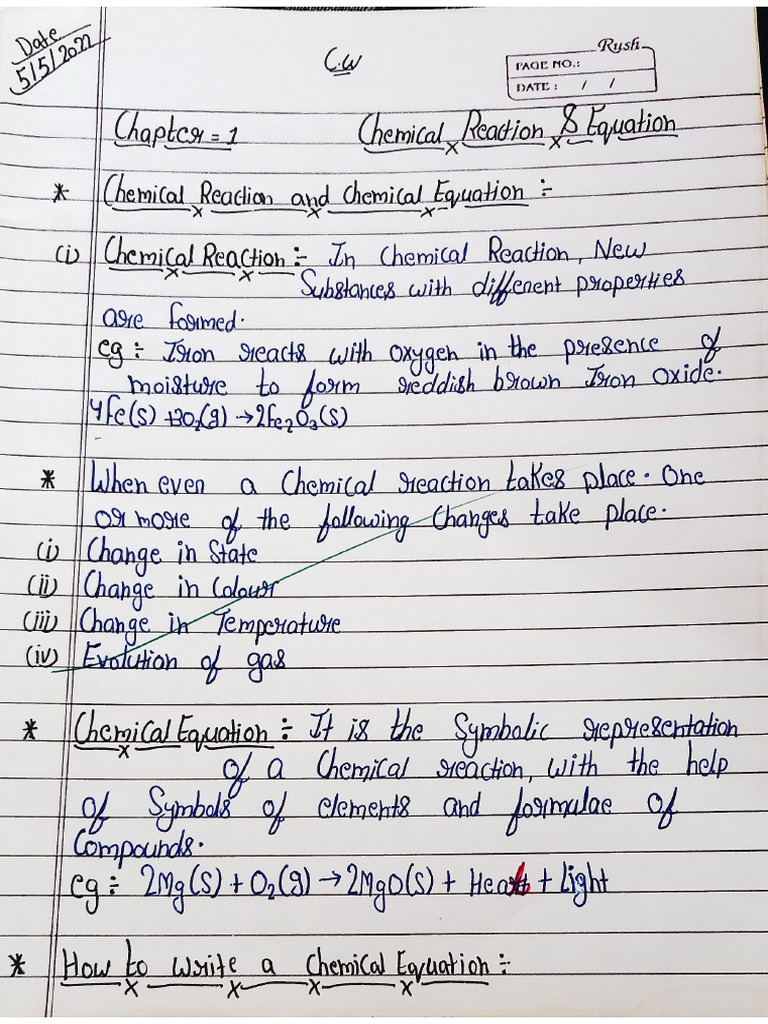 Date
5/5/2022
C.W
Rush
PAGE NO.:
DATE : / /
Chapter = 1 Chemical Reaction & Equation
* Chemical Reaction and Chemical Equation :-
(i) Chemical Reaction :- In Chemical Reaction, New
Substances with different properties
are formed.
eg :- Iron reacts with oxygen in the presence of
moisture to form reddish brown Iron Oxide.
4Fe(s) + 3O₂(g) → 2Fe₂O₃(s)
* When even a Chemical reaction takes place. One
or more of the following Changes take place.
(i) Change in State
(ii) Change in Colour
(iii) Change in Temperature
(iv) Evolution of gas
* Chemical Equation :- It is the Symbolic representation
of a Chemical reaction, with the help
of Symbols of elements and formulae of
Compounds.
eg :- 2Mg(s) + O₂(g) → 2MgO(s) + Heat + Light
* How to write a Chemical Equation :-